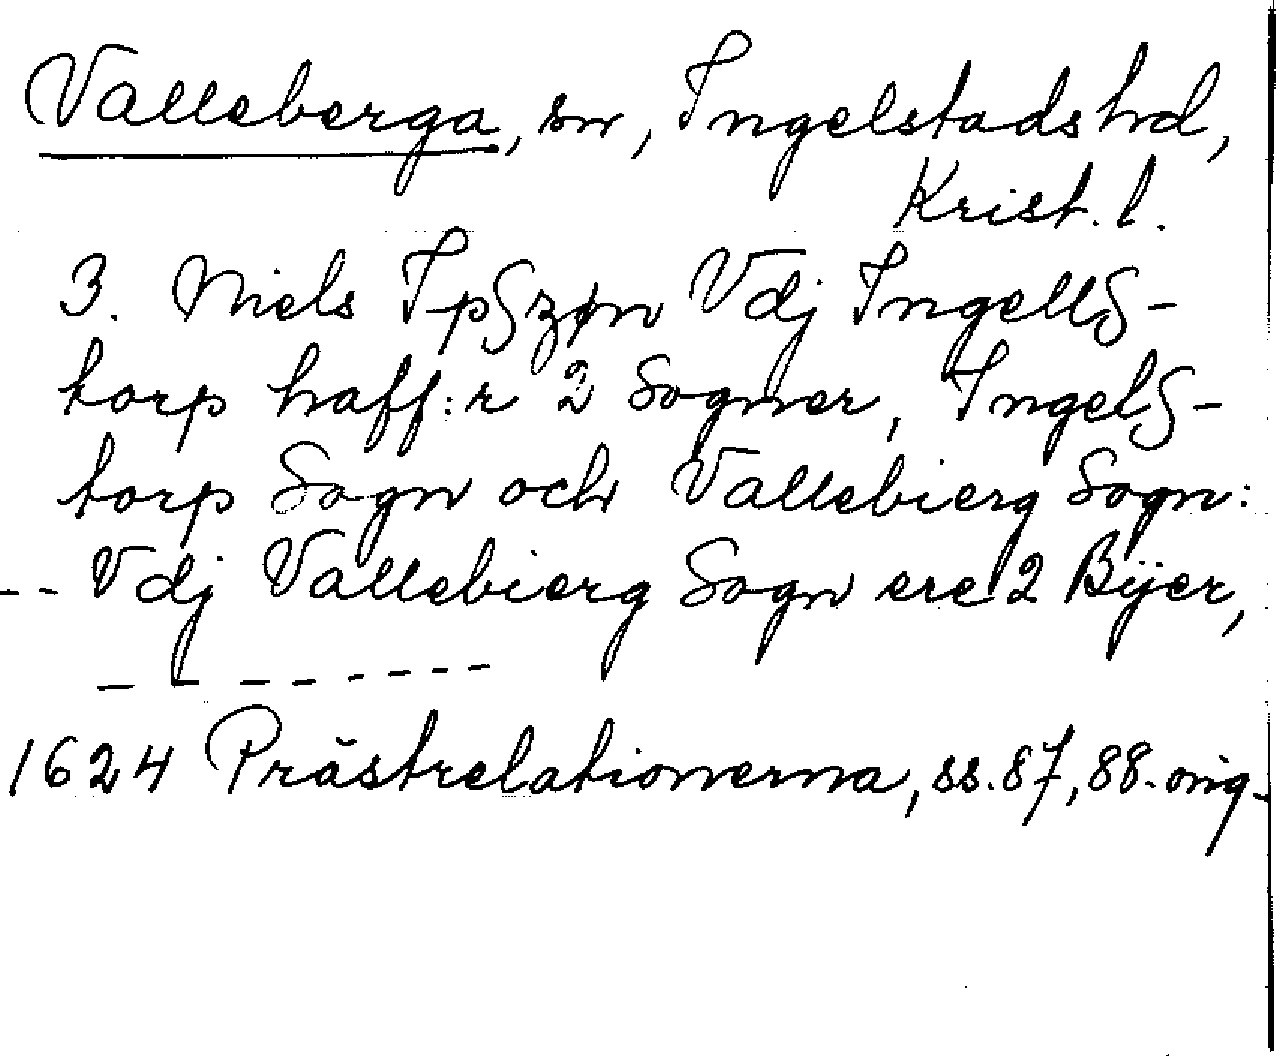 Valleberga, sn, Ingelstads hd,
Krist. l.
3. Niels Ipßzøn Vdj Ingellß-
torp haff:r 2 Sogner, Ingelß-
torp Sogn och Vallebierg Sogn:
-- Vdj Vallebierg Sogn ere 2 Bÿer,
- - - - - - - -
1624 Prästrelationerna, ss. 87, 88. orig.